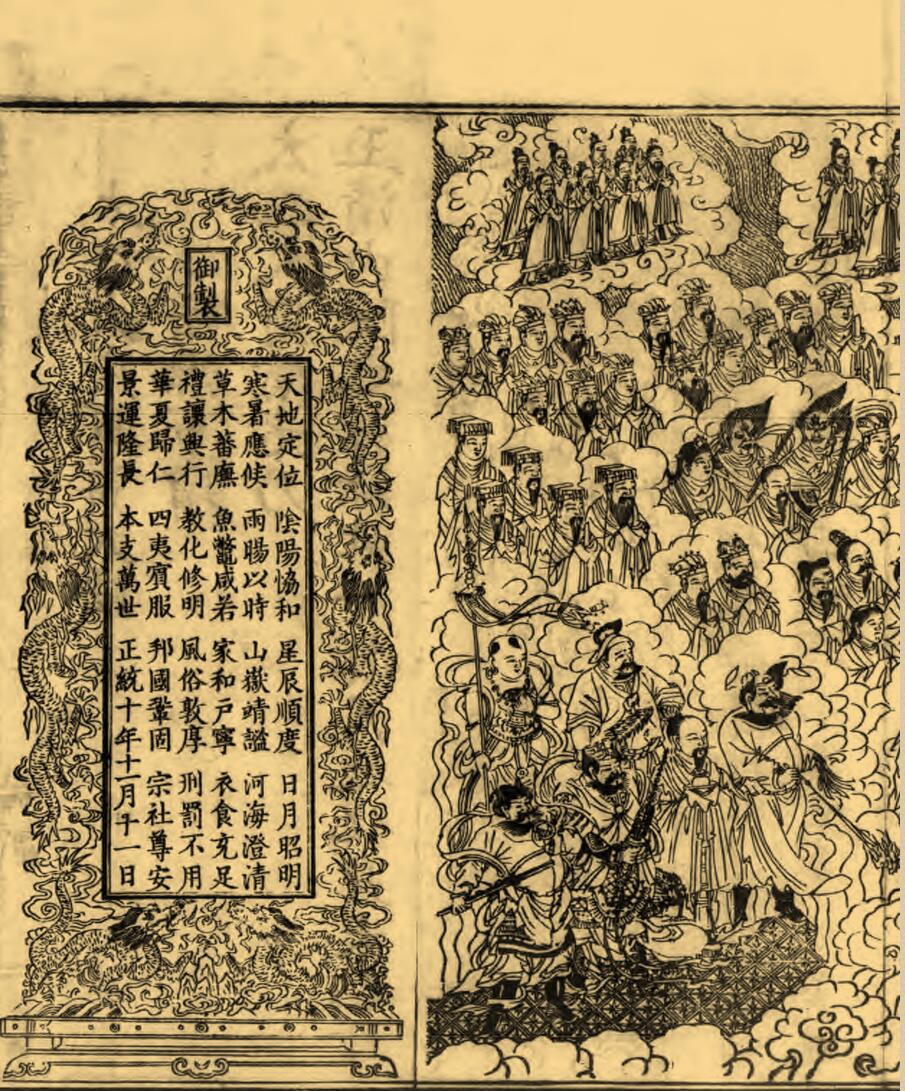 御製
天地定位 陰陽恊和 星辰順度 日月昭明
寒暑應候 雨暘以時 山嶽靖謐 河海澄清
草木蕃廡 魚鼈咸若 家和戸寧 衣食充足
禮讓興行 教化修明 風俗敦厚 刑罰不用
華夏歸仁 四夷賓服 邦國鞏固 宗社尊安
景運隆長 本支萬世 正統十年十一月十一日